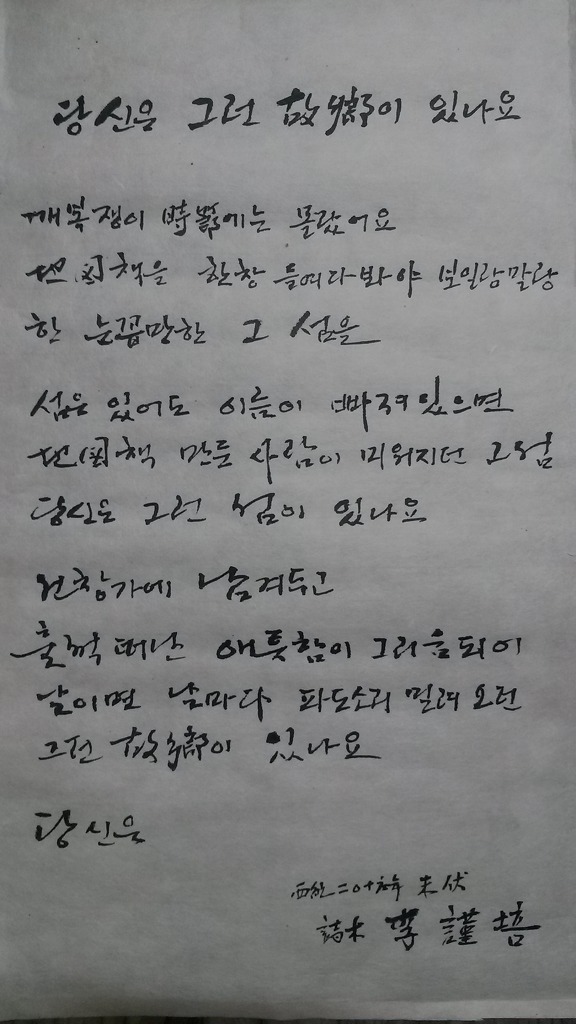 당신은 그런 故鄕이 있나요
깨복쟁이 時節에는 몰랐어요
地図책을 한참 들여다봐야 보일랑말랑
한 눈꼽만한 그 섬을
섬은 있어도 이름이 빠져있으면
地図책 만든 사람이 미워지던 그 섬
당신은 그런 섬이 있나요
선창가에 남겨두고
훌쩍 떠난 애틋함이 그리움되어
날이면 날마다 파도소리 밀려 오던
그런 故鄕이 있나요
당신은
西紀二○十六年 末伏
李謹培